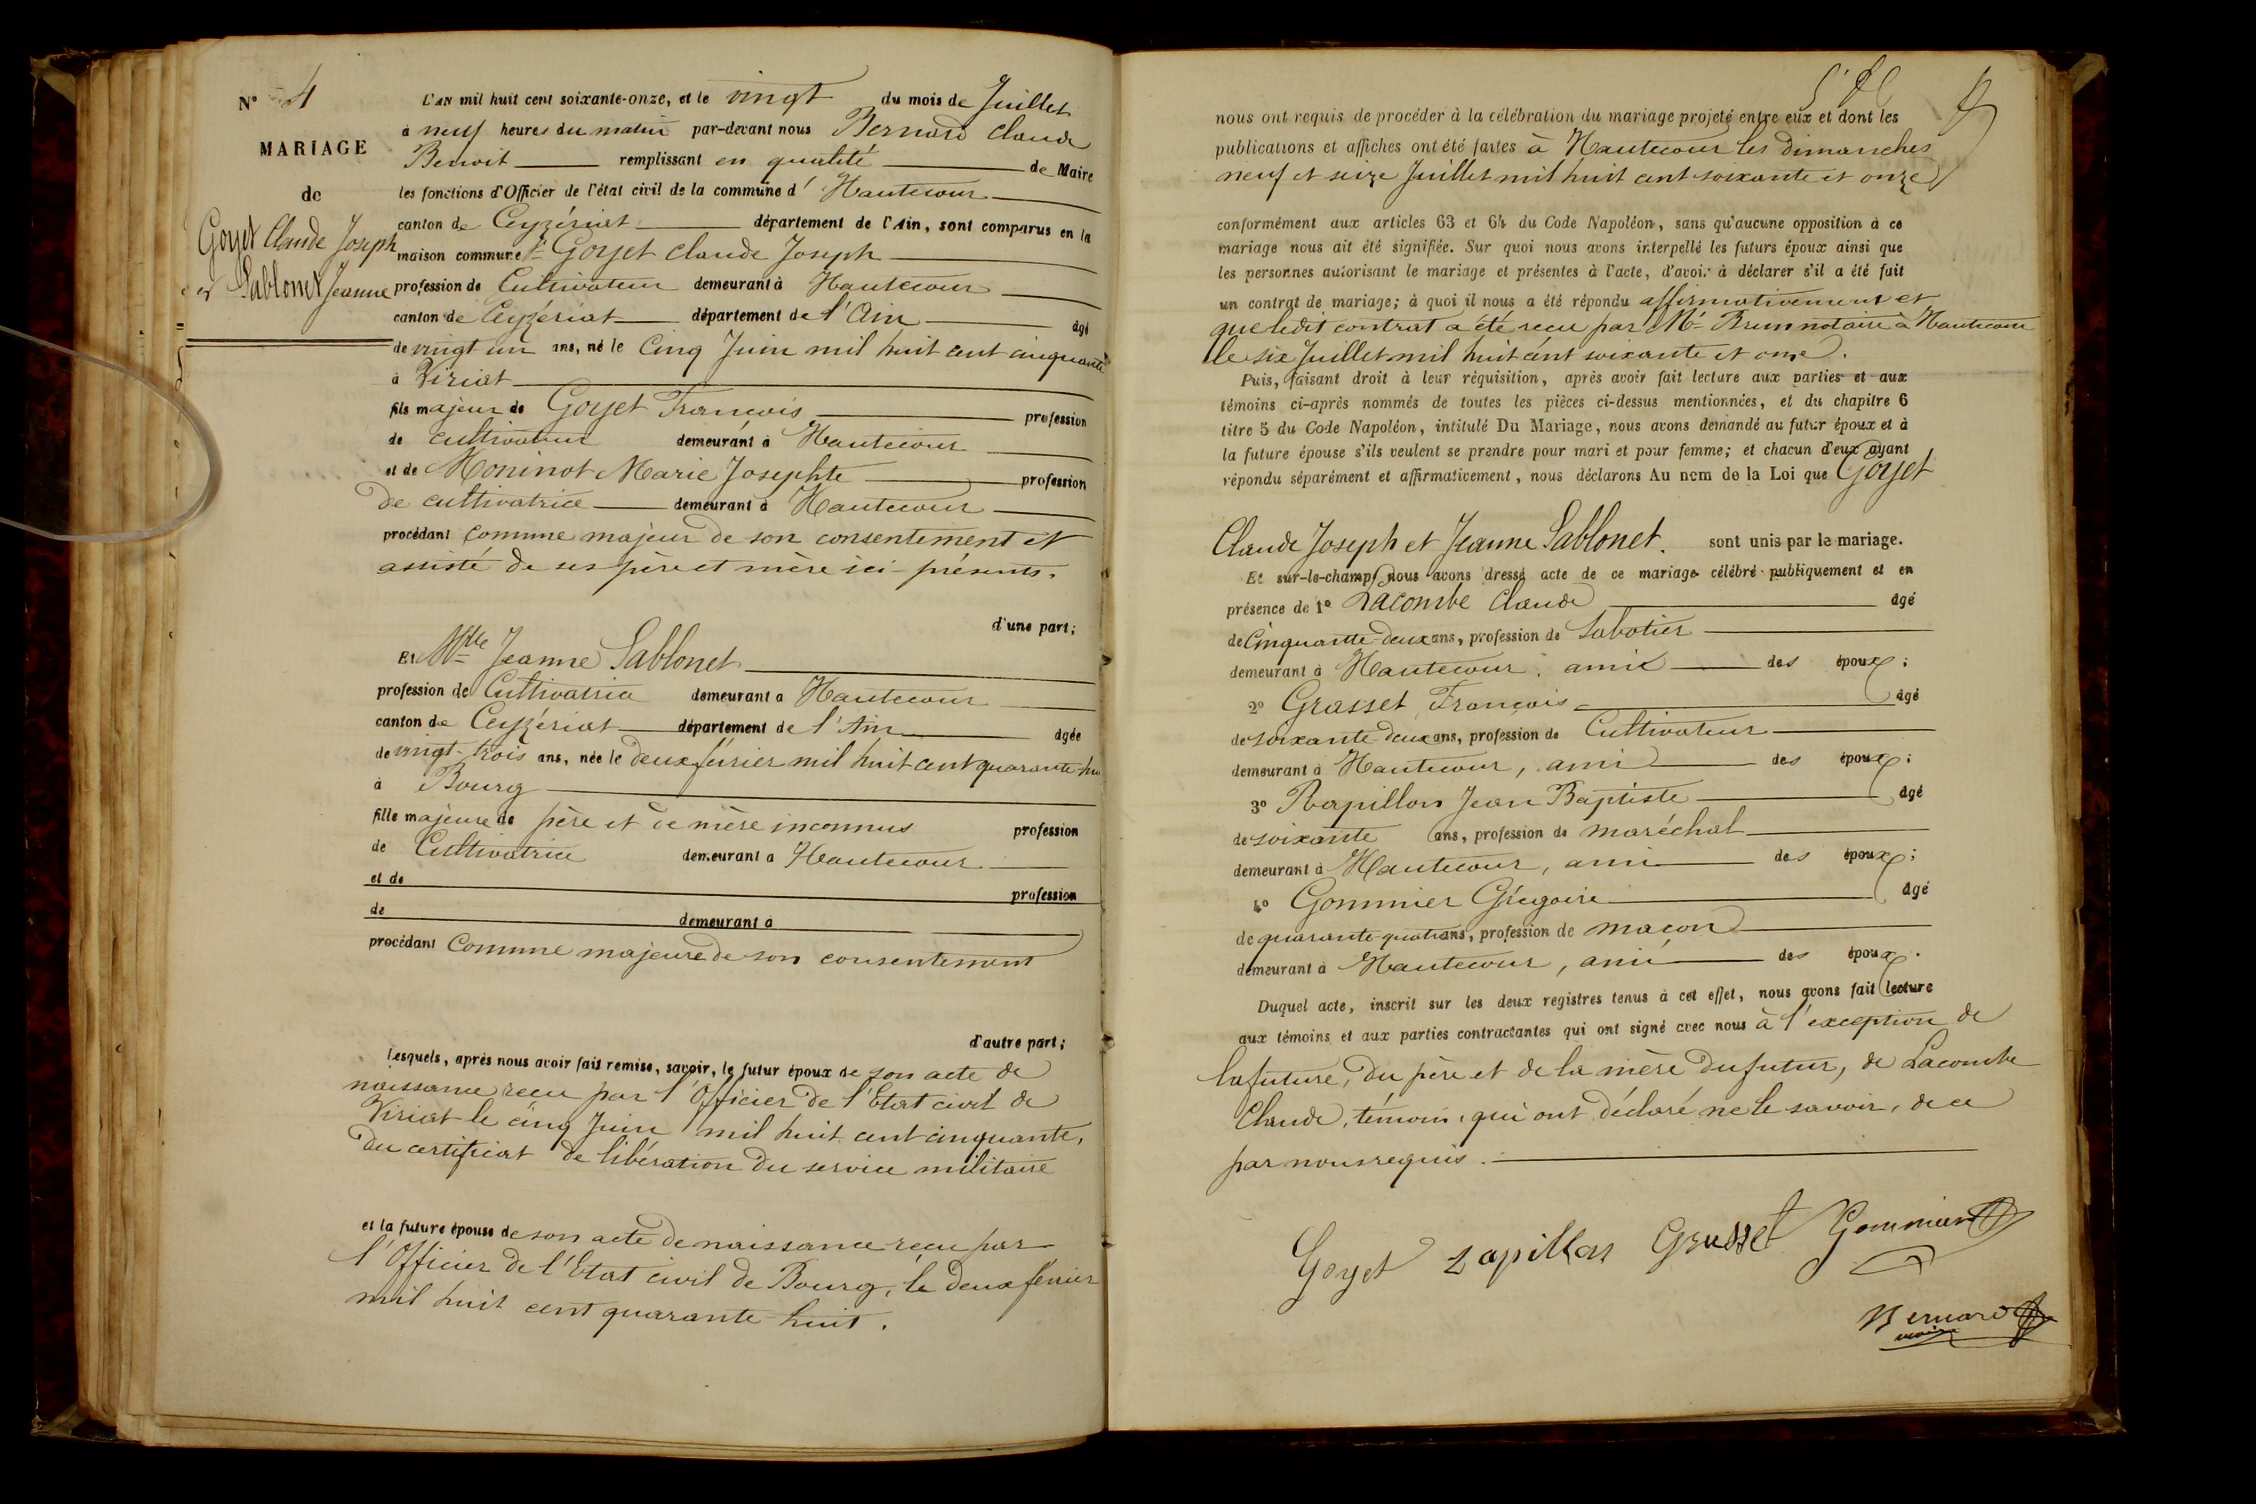 N° 4
MARIAGE
de
Goyet Claude Joseph
et Sablonet Jeanne
L'AN mil huit cent soixante-onze, et le vingt du mois de Juillet
à neuf heures du matin par-devant nous Bernard Claude
Benoit remplissant en qualité de Maire
les fonctions d'Officier de l'état civil de la commune d' Hautecour
canton de Ceyzériat département de l'Ain, sont comparus en la
maison commune Sr Goyet Claude Joseph
profession de Cultivateur demeurant à Hautecour
canton de Ceyzériat département de l'Ain âgé
de vingt un ans, né le Cinq Juin mil huit cent cinquante
à Viriat
fils majeur de Goyet François profession
de cultivateur demeurant à Hautecour
et de Moninot Marie Josephte profession
de cultivatrice demeurant à Hautecour
procédant comme majeur de son consentement et
assisté de ses père et mère ici présents.
d'une part;
Et Mlle Jeanne Sablonet
profession de Cultivatrice demeurant à Hautecour
canton de Ceyzériat département de l'Ain âgée
de vingt-trois ans, née le deux février mil huit cent quarante-hu
à Bourg
fille majeure de père et de mère inconnus profession
de Cultivatrice demeurant à Hautecour
et de profession
de demeurant à
procédant Comme majeure de son consentement
d'autre part;
Lesquels, après nous avoir fait remise, savoir, le futur époux de son acte de
naissance reçu par l'Officier de l'Etat civil de
Viriat le cinq Juin mil huit cent cinquante,
du certificat de libération du service militaire
et la future épouse de son acte de naissance reçu par
l'Officier de l'Etat civil de Bourg, le deux fevrier
mil huit cent quarante-huit.
nous ont requis de procéder à la célébration du mariage projeté entre eux et dont les
publications et affiches ont été faites à Hautecour les dimanches
neuf et seize Juillet mil huit cent soixante et onze
conformément aux articles 63 et 64 du Code Napoléon, sans qu'aucune opposition à ce
mariage nous ait été signifiée. Sur quoi nous avons interpellé les futurs époux ainsi que
les personnes autorisant le mariage et présentes à l'acte, d'avoir à déclarer s'il a été fait
un contrat de mariage; à quoi il nous a été répondu affirmativement et
que ledit contrat a été reçu par Me Brun notaire à Hautecour
le six Juillet mil huit cent soixante et onze.
Puis, faisant droit à leur réquisition, après avoir fait lecture aux parties et aux
témoins ci-après nommés de toutes les pièces ci-dessus mentionnées, et du chapitre 6
titre 5 du Code Napoléon, intitulé Du Mariage, nous avons demandé au futur époux et à
la future épouse s'ils veulent se prendre pour mari et pour femme; et chacun d'eux ayant
répondu séparément et affirmativement, nous déclarons Au nom de la Loi que Goyet
Claude Joseph et Jeanne Sablonet. sont unis par le mariage.
Et sur-le-champ nous avons dressé acte de ce mariage célébré publiquement et en
présence de 1° Lacombe Claude âgé
de Cinquante-deux ans, profession de Sabotier
demeurant à Hautecour, ami des époux;
2° Grasset François âgé
de soixante deux ans, profession de Cultivateur
demeurant à Hautecour, ami des époux;
3° Rapillon Jean Baptiste âgé
de soixante ans, profession de maréchal
demeurant à Hautecour, ami des époux;
4° Gommier Grégoire âgé
de quarante-quatre ans, profession de maçon
demeurant à Hautecour, ami des époux.
Duquel acte, inscrit sur les deux registres tenus à cet effet, nous avons fait lecture
aux témoins et aux parties contractantes qui ont signé avec nous à l'exception de
la future, du père et de la mère du futur, de Lacombe
Claude, témoin, qui ont déclaré ne le savoir, de ce
par nous requis.
Goyet rapillon Grasset Gommier
Bernard
maire